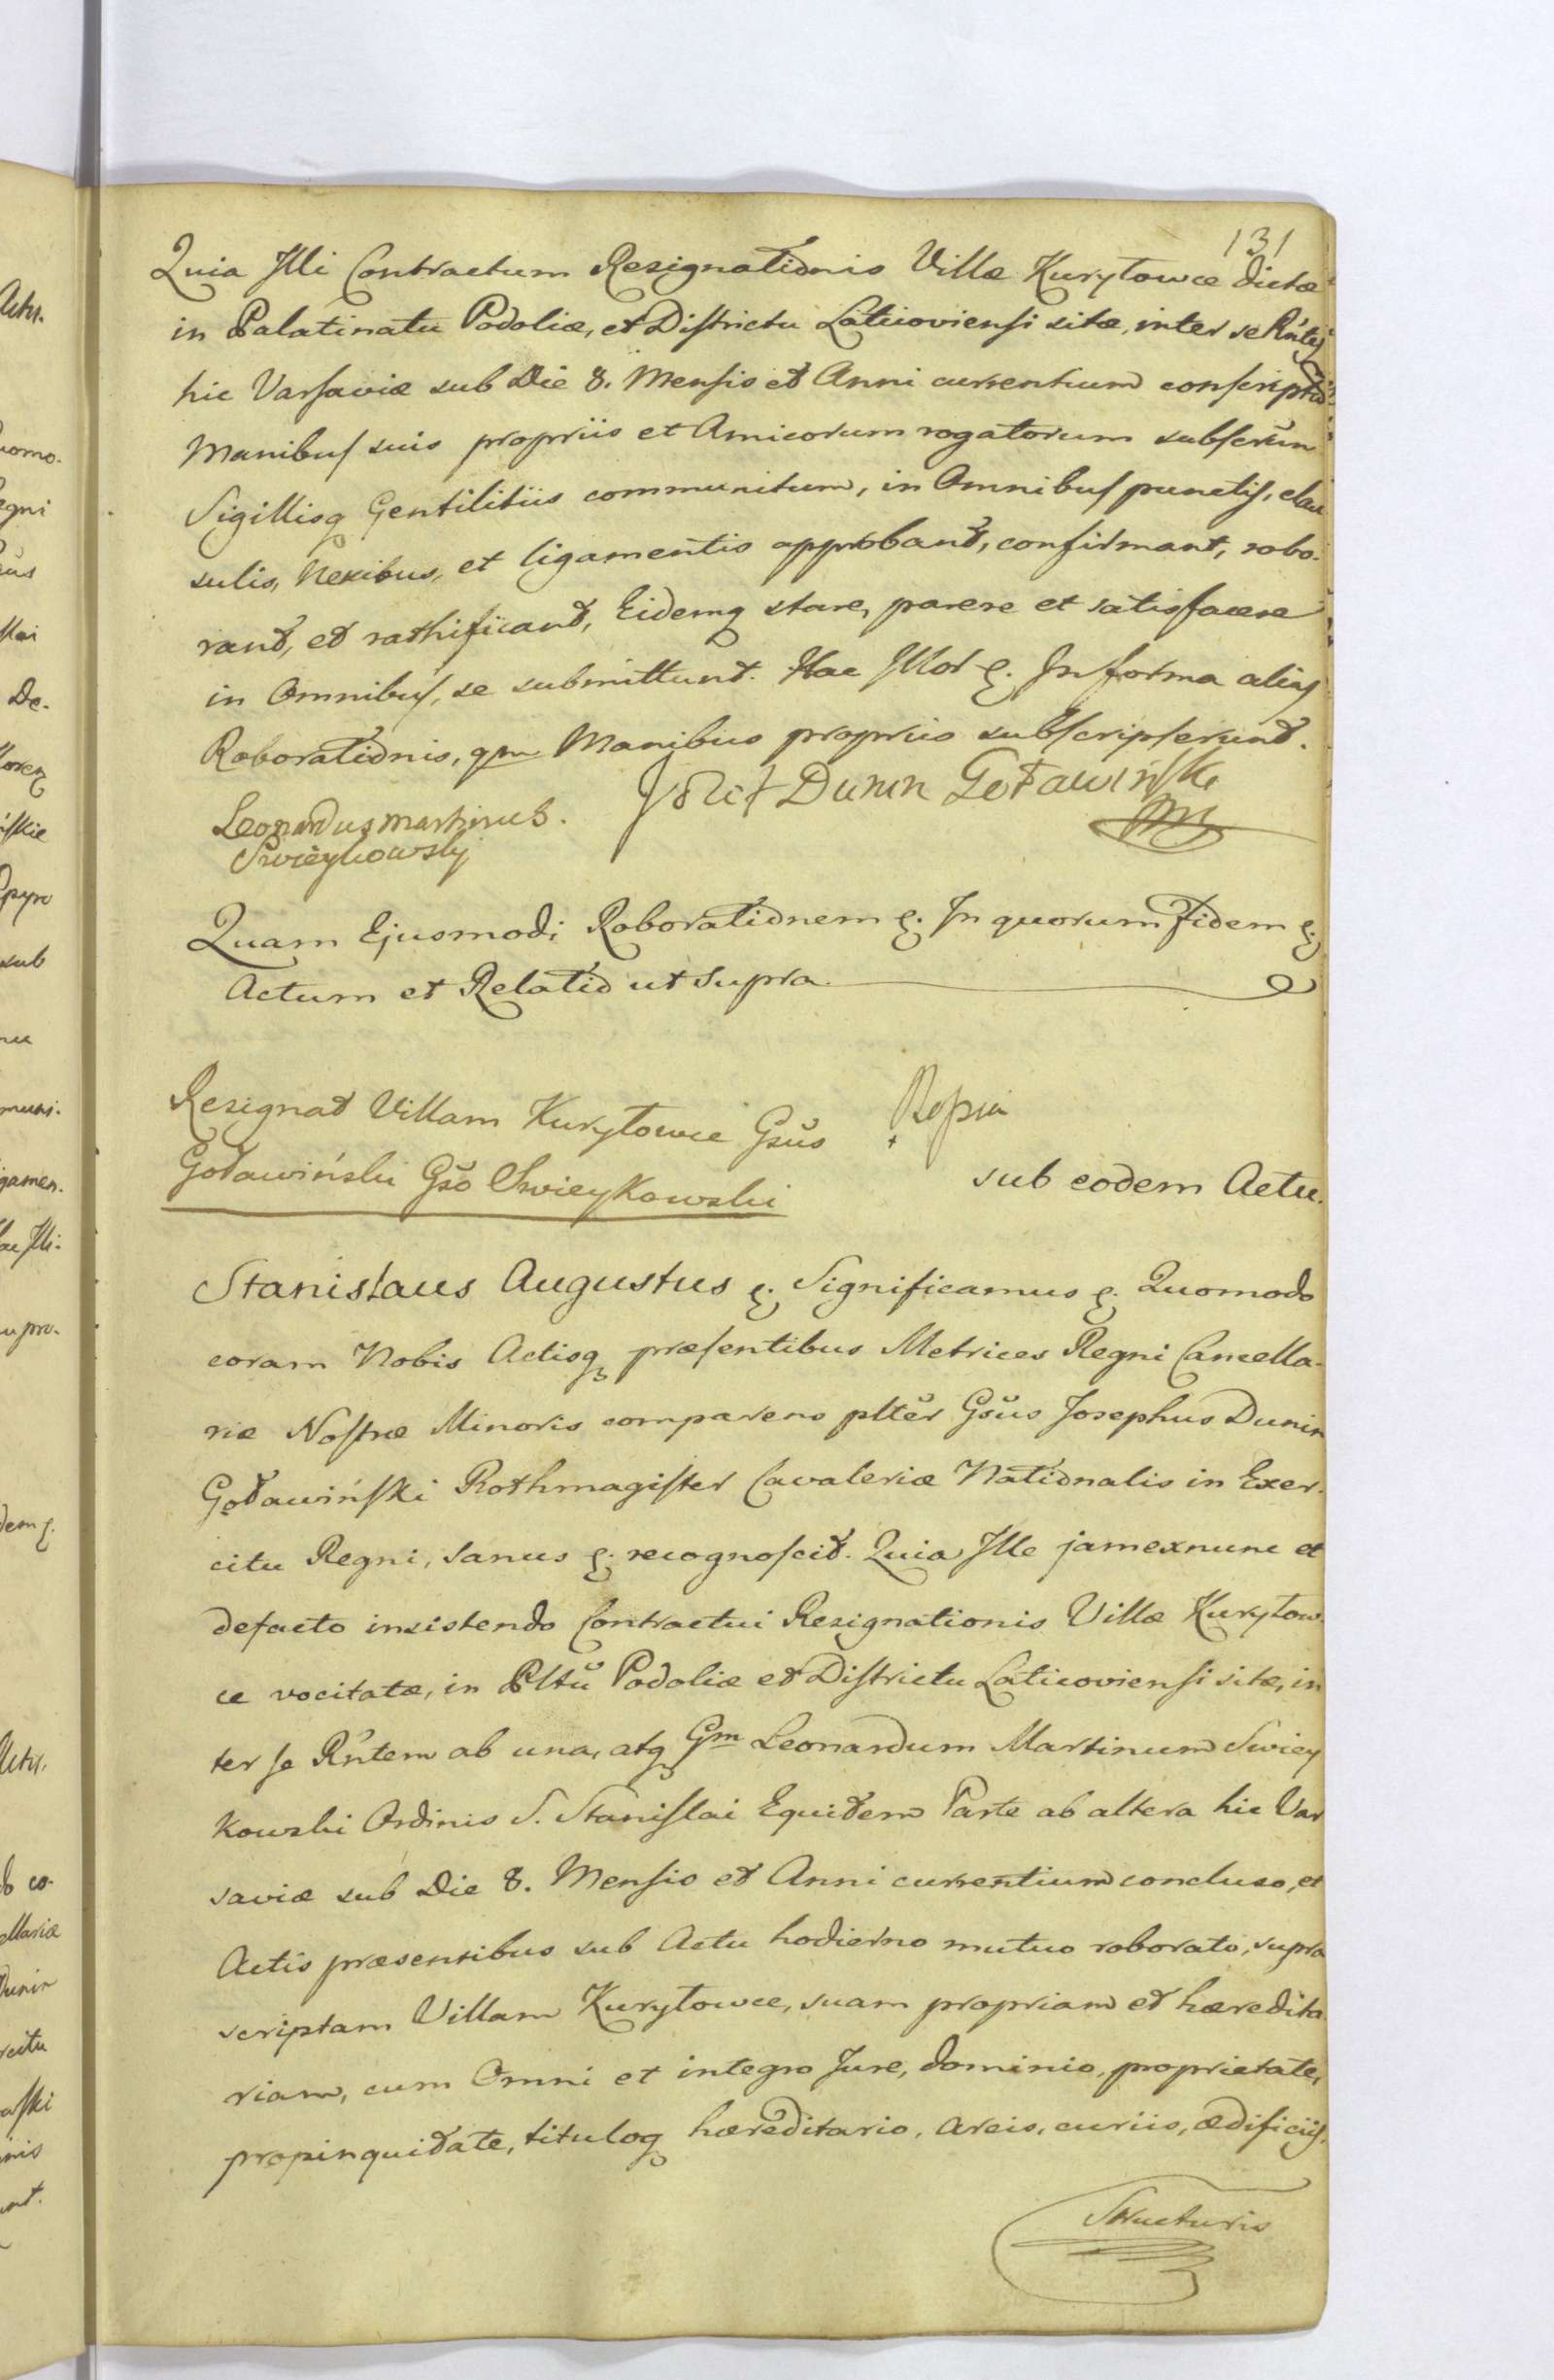 131
Quia Illi Contractum Resignationis Villæ Kuryłowce dictæ
in Palatinatu Podoliæ, et Districtu Laticoviensi sitæ, inter se Rńtes
hic Varsaviæ sub Die 8. Mensis et Anni currentium conscriptum
Manibus suis propriis et Amicorum rogatorum subscrũm
Sigillisq Gentilitiis communitum, in Omnibus punctis, clau
sulis, Nexibus, et ligamentis approbant, confirmant, robo-
rant, et rathificant, Eidemq stare, parere et satisfacere
in Omnibus, se submittunt. Hac Illor ꝛ. In forma alias
Roborationis, qm Manibus propriis subscripserunt.
Leonardus Martinus. Józef Dunin Goławiński
Swieykowsky mp
Quam Ejusmodi Roborationem ꝛ. In quorum Fidem ꝛ.
Actum et Relatio ut Supra.
Resignat Villam Kuryłowce Gsũs
Goławiński Gsõ Swieykowski
sub eodem Actu.
Stanislaus Augustus ꝛ. Significamus ꝛ. Quomodo
coram Nobis Actisq præsentibus Metrices Regni Cancella-
riæ Nostræ Minoris comparens pltĕr Gsũs Josephus Dunin
Goławiński Rothmagister Cavaleriæ Nationalis in Exer-
citu Regni, sanus ꝛ. recognoscit. Quia Ille jamexnunc et
defacto insistendo Contractui Resignationis Villæ Kuryłow-
ce vocitatæ, in Pltũ Podoliæ et Districtu Laticoviensi sitæ, in
ter se Rńtem ab una, atq Gm Leonardum Martinum Swiey
kowski Ordinis S. Stanislai Equitem Parte ab altera hic Var
saviæ sub Die 8. Mensis et Anni currentium concluso, et
Actis præsentibus sub Actu hodierno mutuo roborato, supra
scriptam Villam Kuryłowce, suam propriam et hæredita
riam, cum Omni et integro Jure, dominio, proprietate,
propinquitate, tituloq hæreditario, areis, curiis, ædificiis,
Structuris